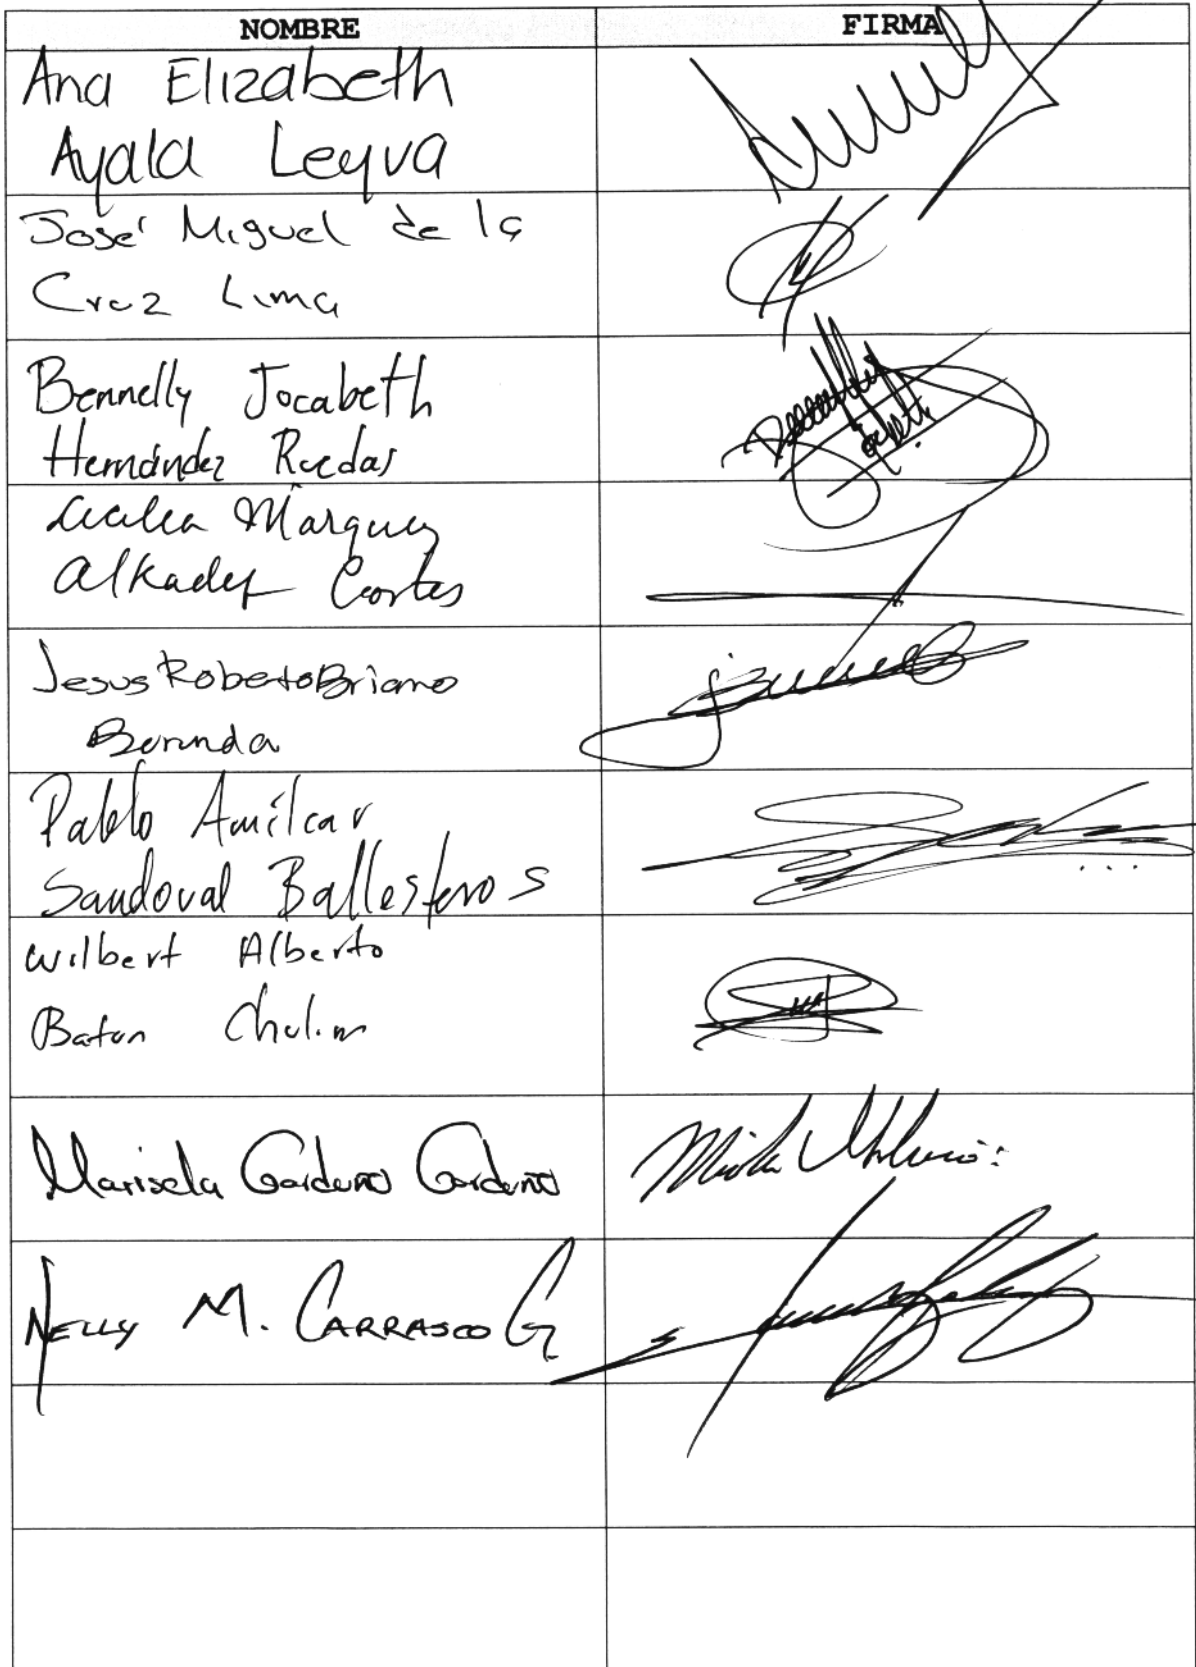 NOMBRE FIRMA
Ana Elizabeth
Ayala Leyva
José Miguel de la
Cruz Lima
Bennelly Jocabeth
Hernández Ruedas
Cecilia Márquez
Alkadef Cortes
Jesus Roberto Briano
Borunda
Pablo Amílcar
Sandoval Ballesteros
Wilbert Alberto
Batun Chulim
Marisela Garduño Garduño
NELLY M. CARRASCO G